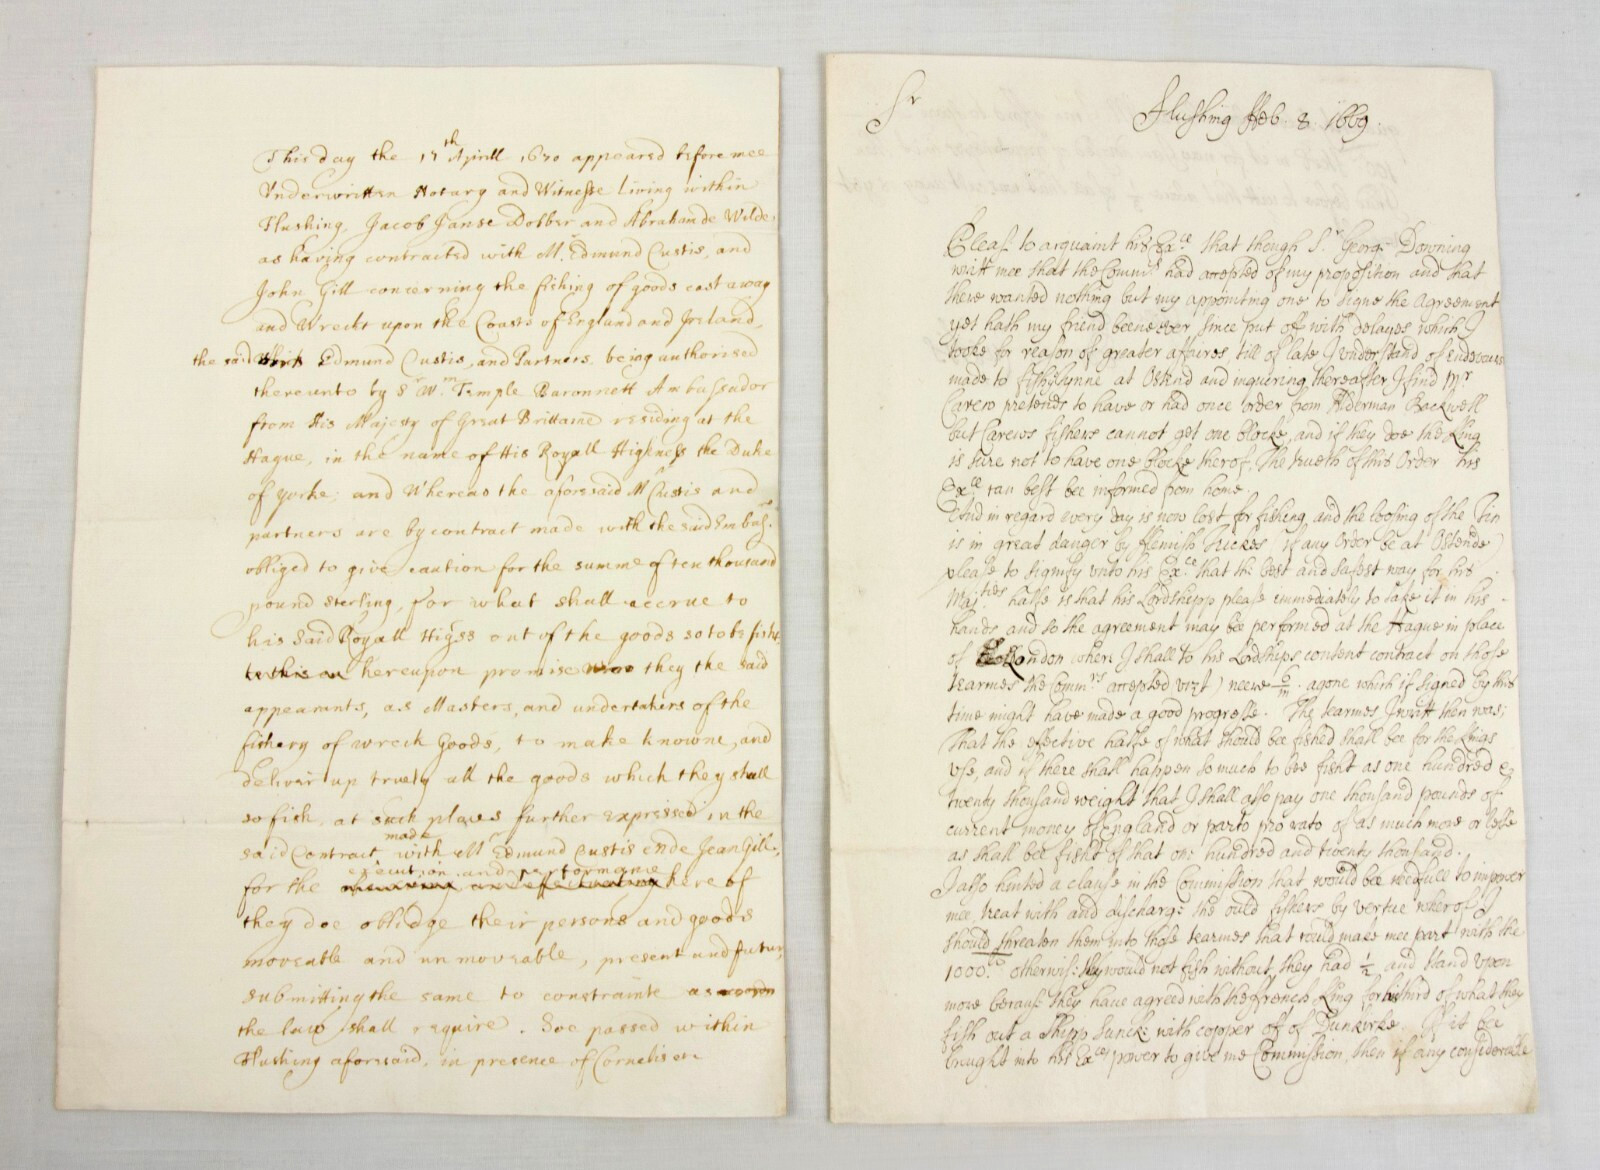 This day the 17th Aprill 1670 appeared before mee
Underwritten Notary and Witnesse Living within
Flushing, Jacob Janse Dobber and Abraham de Wilde,
as having contracted with Mr. Edmund Custis, and
John Gill concerning the fishing of goods cast away
and Wreckt upon the Coasts of England and Ireland,
the said Edmund Custis, and Partners being authorised
thereunto by Sr Wm. Temple Baronnett Ambassador
from His Majesty of Great Brittaine residing at the
Hague, in the name of His Royall Highness the Duke
of yorke; and Whereas the aforesaid Mr Custis and
partners are by contract made with the said Embass.
obliged to give caution for the summe of ten thousand
pound sterling, for what shall accrue to
his said Royall Higss out of the goods so to be fisht
hereupon promise they the said
appearants, as Masters, and undertakers of the
fishery of wreck Goods, to make knowne, and
deliver up truely all the goods which they shall
so fish, at such places further expressed in the
said Contract made with Mr Edmund Custis ende Jean Gill,
for the execution and performanie here of
they doe oblidge their persons and goods
moveable and unmoveable, present and future,
submitting the same to constrainte as
the law shall require. Soe passed within
Flushing aforesaid, in presence of Cornelis
Sr
Flushing Feb. 8. 1669.
Please to acquaint his Exce that though Sr. George Downing
writt mee that the Commrs had accepted of my proposition and that
there wanted nothing but my appointing one to signe the Agreement
yet hath my friend beene ever since put off with delayes which I
tooke for reason of greater affaires, till of late I understand of endevours
made to fish Tynne at Ostend and inquering thereafter I find Mr
Carew pretends to have or had once order from Alderman Backwell
but Carews fishers cannot get one blocke, and if they doe the King
is sure not to have one blocke therof, The trueth of this Order his
Exce can best bee informed from home.
And in regard every day is now lost for fishing and the loosing of the Tin
is in great danger by flemish trickes (if any Order be at Ostende)
please to signify unto his Exce that the best and safest way for his
Majties halfe is that his Lordshipp please immediately to take it in his
hands and so the agreement may bee performed at the Hague in place
of London where I shall to his Lordships content contract on those
tearmes the Commrs accepted vizt) neere 6/m agone which if signed by this
time might have made a good progresse. The tearmes I writt then was;
That the effective halfe of what should bee fished shall bee for the Kings
use, and if there shall happen so much to bee fisht as one hundred &
twenty thousand weight that I shall also pay one thousand pounds of
current money of England or parto pro rato of as much more or lesse
as shall bee fisht of that one hundred and twenty thousand.
I also hinted a clause in the Commission that would bee needfull to impower
mee, treat with and discharge the ould fishers by vertue wherof I
should threaten them into those tearmes that could make mee part with the
1000: otherwise they would not fish without they had 1/2 and stand upon
more because they have agreed with the french King for third of what they
fish out a Shipp sunck with copper off of Dunkirke. If it bee
brought into his Exces power to give me Commission, then if any considerable